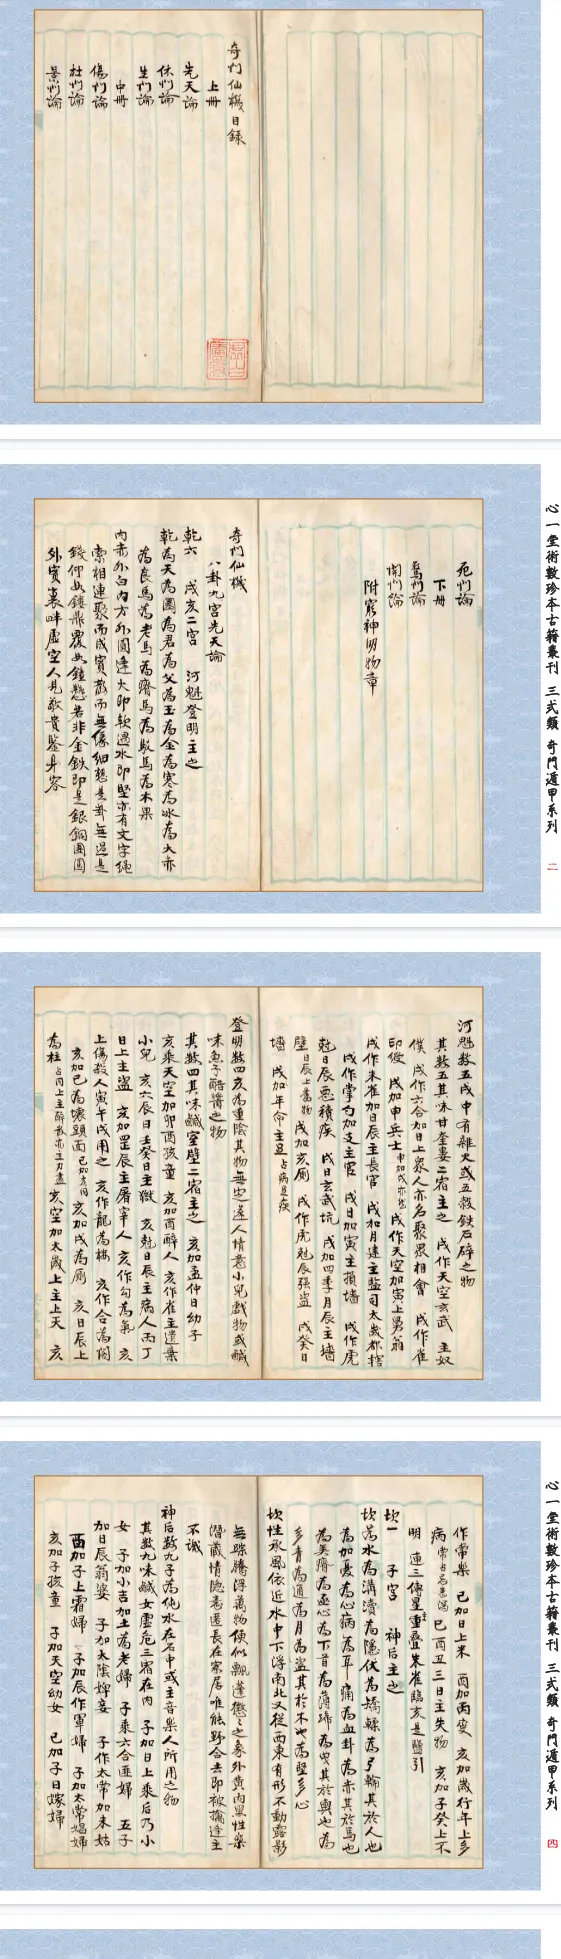 奇門仙機目錄
上冊
先天論
休門論
生門論
中冊
傷門論
杜門論
景門論
心一堂術數珍本古籍叢刊 三式類 奇門遁甲系列
二
死門論
下冊
驚門論
開門論
附窮神明物章
奇門仙機
八卦九宮先天論
乾六 戌亥二宮 河魁登明主之
乾為天為圜為君為父為玉為金為寒為冰為大赤
為良馬為老馬為瘠馬為駁馬為木果
內赤外白內方外圓逢火即軟遇水即堅亦有文字繩
索相連聚而成實散而無像細想是卦無過是
錢仰如鏡鼎覆如鐘懸若非金鉄即是銀銅團圓
外實裏畔虛空人見敬貴鑒身容
河魁數五戌中有雜火或五穀鉄石碎之物
其數五其味甘奎婁二宿主之 戌作天空玄武 主奴
僕 戌作六合加日上衆人亦名聚眾相會 戌作雀
印綬 戌加申兵士申加戌亦然 戌作天空加寅上舅翁
戌作朱雀加日辰主長官 戌加月建主監司太歲都
戌作掌勾加支主官 戌日加寅主損墻 戌作虎
尅日辰患積疾 戌日玄武坑 戌加四季月辰主墻
壁日辰上畜物 戌加亥厠 戌作虎尅辰強盜 戌癸日
墻 戌加年命主足占病足疾
登明數四亥為重陰其物無定遂人情意小兒戲物或鹹
味魚子醋醬之物
其數四其味鹹室壁二宿主之 亥加孟仲日幼子
亥乘天空加卯酉孩童 亥加酉醉人 亥作雀主遺棄
小兒 亥六辰日壬癸日主獄 亥尅日辰主病人丙丁
日上主盜 亥加罡辰主屠宰人 亥作勾為氣 亥
上傷殺人寅午戌用之 亥作龍為樓 亥作合為閣
亥加巳為壞頭面巳加亥同 亥加戌為厠 亥日辰上
為柱 亥空加太歲上主上天 亥
心一堂術數珍本古籍叢刊 三式類 奇門遁甲系列
四
作常樂 巳加日上米 酉加丙變 亥加歲行年上多
病 巳酉丑三日主失物 亥加子癸上不
明 連三傳星重疊朱雀臨亥是鹽引
坎一 子宮 神后主之
坎為水為溝瀆為隱伏為矯輮為弓輪其於人也
為加憂為心病為耳痛為血卦為赤其於馬也
為美脊為亟心為下首為薄蹄為曳其於輿也為
多眚為通為月為盜其於木也為堅多心
坎性承風依近水中下浮南北又從西東有形不動露影
無蹤騰浮萬物使似飄蓬之象外黄內黑性樂
潛藏情隱患遥長在家居唯能野合去即被擒逢主
不識
神后數九子為純水在石中或主音樂人所用之物
其數九味鹹女虛危三宿在內 子加日上乘后乃小
女 子加小吉加土為老婦 子乘六合匪婦 五子
加日辰翁婆 子加太陰婢妾 子作太常加未姑
酉加子上霜婦 子加辰作軍婦 子加太常娼婦
亥加子孩童 子加天空幼女 巳加子日嫁婦